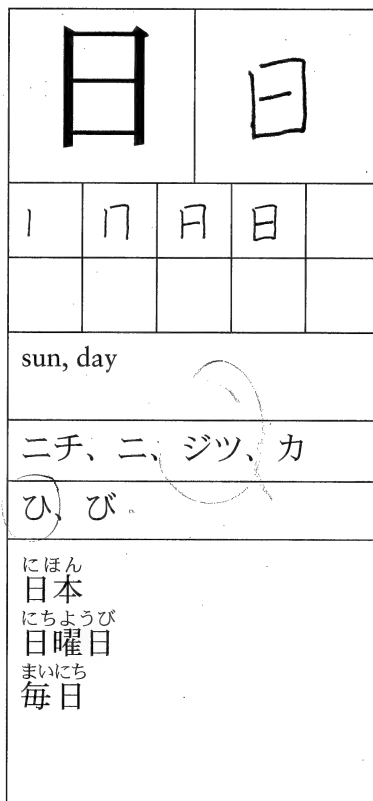 日 日
丨 冂 月 日
sun, day
ニチ、ニ、ジツ、カ
ひ、び
にほん
日本
にちようび
日曜日
まいにち
毎日